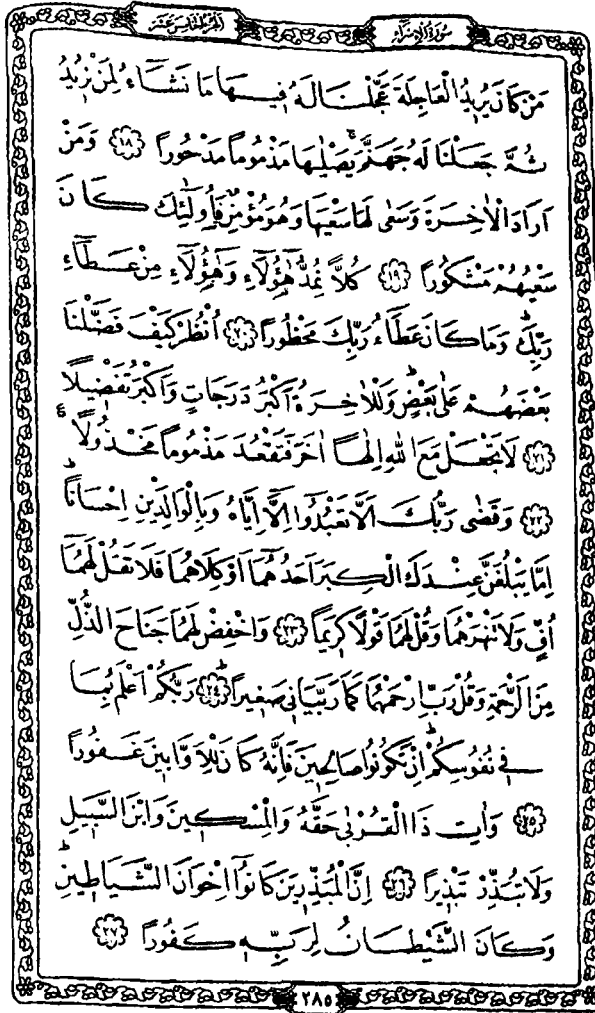 سُورَةُ الْاِسْرَاءِ
اَلْجُزْءُ الْخَامِسَ عَشَرَ
مَنْ كَانَ يُرٖيدُ الْعَاجِلَةَ عَجَّلْنَا لَهُ فٖيهَا مَا نَشَٓاءُ لِمَنْ نُرٖيدُ
ثُمَّ جَعَلْنَا لَهُ جَهَنَّمَۚ يَصْلٰيهَا مَذْمُوماً مَدْحُوراً ﴿١٨﴾ وَمَنْ
اَرَادَ الْاٰخِرَةَ وَسَعٰى لَهَا سَعْيَهَا وَهُوَ مُؤْمِنٌ فَاُو۬لٰٓئِكَ كَانَ
سَعْيُهُمْ مَشْكُوراً ﴿١٩﴾ كُلاًّ نُمِدُّ هٰٓؤُ۬لَٓاءِ وَهٰٓؤُ۬لَٓاءِ مِنْ عَطَٓاءِ
رَبِّكَۜ وَمَا كَانَ عَطَٓاءُ رَبِّكَ مَحْظُوراً ﴿٢٠﴾ اُنْظُرْ كَيْفَ فَضَّلْنَا
بَعْضَهُمْ عَلٰى بَعْضٍۜ وَلَلْاٰخِرَةُ اَكْبَرُ دَرَجَاتٍ وَاَكْبَرُ تَفْضٖيلاً
﴿٢١﴾ لَا تَجْعَلْ مَعَ اللّٰهِ اِلٰهاً اٰخَرَ فَتَقْعُدَ مَذْمُوماً مَخْذُولاًࣖ
﴿٢٢﴾ وَقَضٰى رَبُّكَ اَلَّا تَعْبُدُٓوا اِلَّٓا اِيَّاهُ وَبِالْوَالِدَيْنِ اِحْسَاناًۜ
اِمَّا يَبْلُغَنَّ عِنْدَكَ الْكِبَرَ اَحَدُهُمَٓا اَوْ كِلَاهُمَا فَلَا تَقُلْ لَهُمَٓا
اُفٍّ وَلَا تَنْهَرْهُمَا وَقُلْ لَهُمَا قَوْلاً كَرٖيماً ﴿٢٣﴾ وَاخْفِضْ لَهُمَا جَنَاحَ الذُّلِّ
مِنَ الرَّحْمَةِ وَقُلْ رَبِّ ارْحَمْهُمَا كَمَا رَبَّيَانٖي صَغٖيراًۜ ﴿٢٤﴾ رَبُّكُمْ اَعْلَمُ بِمَا
فٖي نُفُوسِكُمْۜ اِنْ تَكُونُوا صَالِحٖينَ فَاِنَّهُ كَانَ لِلْاَوَّابٖينَ غَفُوراً
﴿٢٥﴾ وَاٰتِ ذَا الْقُرْبٰى حَقَّهُ وَالْمِسْكٖينَ وَابْنَ السَّبٖيلِ
وَلَا تُبَذِّرْ تَبْذٖيراً ﴿٢٦﴾ اِنَّ الْمُبَذِّرٖينَ كَانُٓوا اِخْوَانَ الشَّيَاطٖينِۜ
وَكَانَ الشَّيْطَانُ لِرَبِّهٖ كَفُوراً ﴿٢٧﴾
٢٨٥